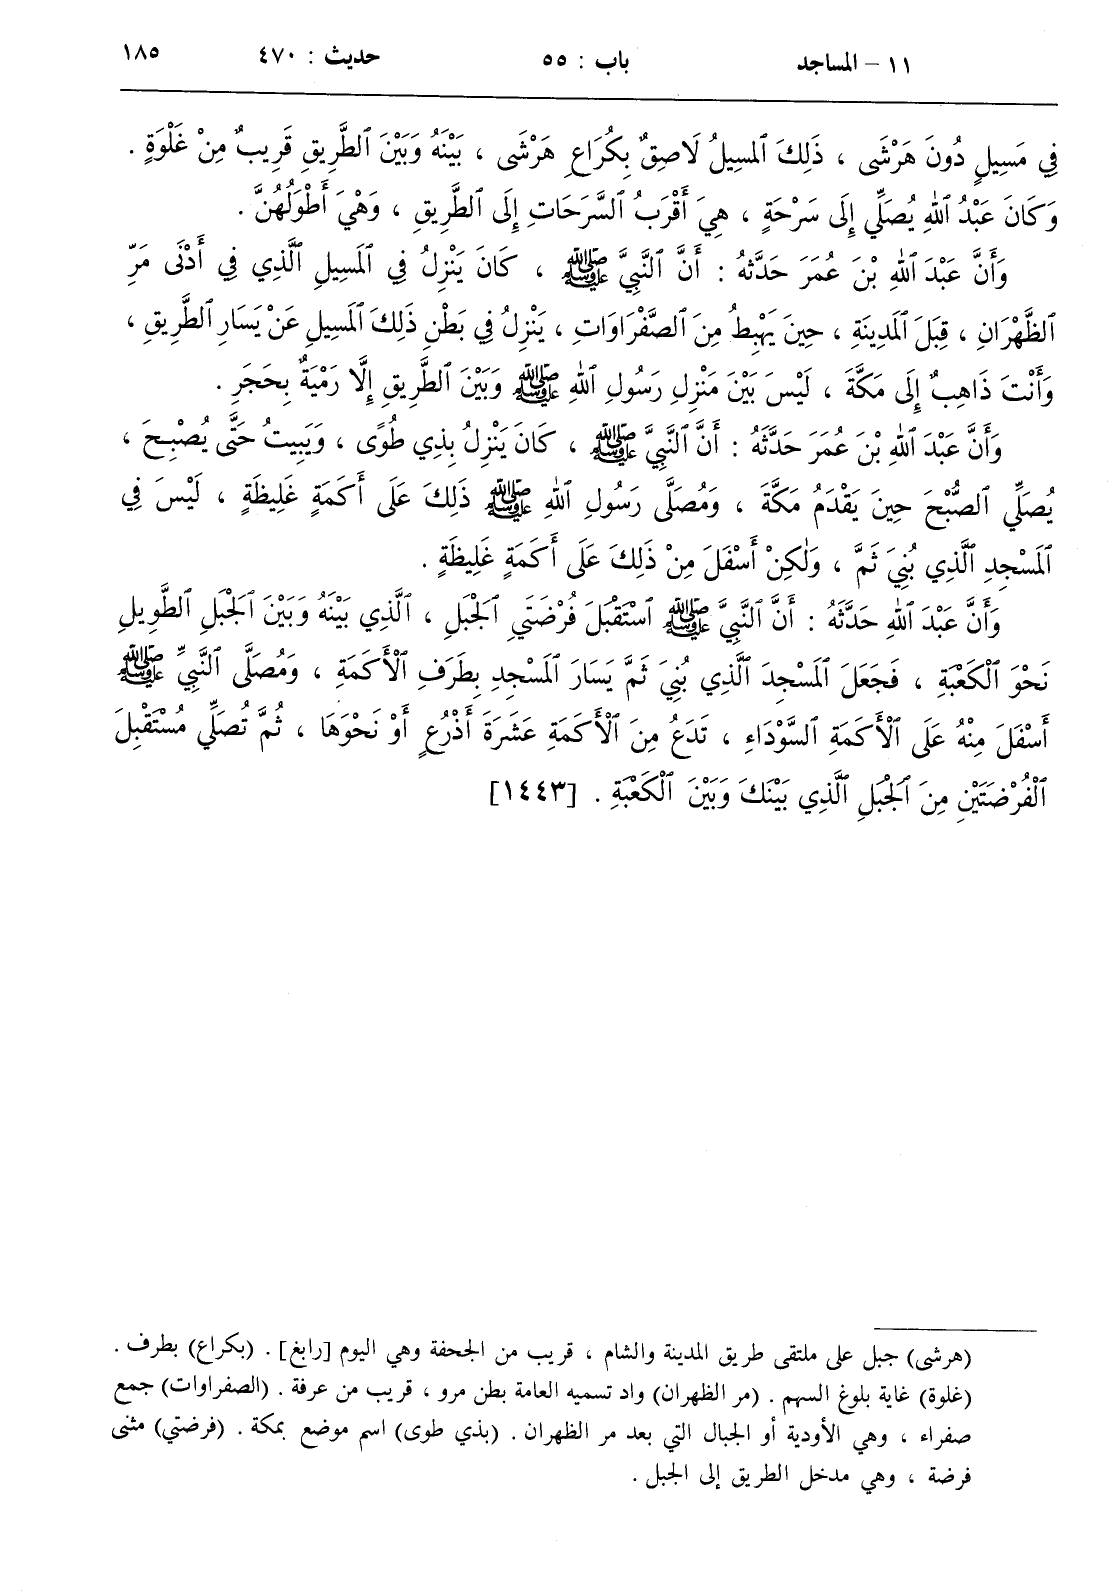 ١١ – المساجد باب : ٥٥ حديث : ٤٧٠ ١٨٥
فِي مَسِيلٍ دُونَ هَرْشَى ، ذَلِكَ الْمَسِيلُ لَاصِقٌ بِكُرَاعِ هَرْشَى ، بَيْنَهُ وَبَيْنَ الطَّرِيقِ قَرِيبٌ مِنْ غَلْوَةٍ .
وَكَانَ عَبْدُ اللهِ يُصَلِّي إِلَى سَرْحَةٍ ، هِيَ أَقْرَبُ السَّرَحَاتِ إِلَى الطَّرِيقِ ، وَهْيَ أَطْوَلُهُنَّ .
وَأَنَّ عَبْدَ اللهِ بْنَ عُمَرَ حَدَّثَهُ : أَنَّ النَّبِيَّ ﷺ ، كَانَ يَنْزِلُ فِي الْمَسِيلِ الَّذِي فِي أَدْنَى مَرِّ
الظَّهْرَانِ ، قِبَلَ الْمَدِينَةِ ، حِينَ يَهْبِطُ مِنَ الصَّفْرَاوَاتِ ، يَنْزِلُ فِي بَطْنِ ذَلِكَ الْمَسِيلِ عَنْ يَسَارِ الطَّرِيقِ ،
وَأَنْتَ ذَاهِبٌ إِلَى مَكَّةَ ، لَيْسَ بَيْنَ مَنْزِلِ رَسُولِ اللهِ ﷺ وَبَيْنَ الطَّرِيقِ إِلَّا رَمْيَةٌ بِحَجَرٍ .
وَأَنَّ عَبْدَ اللهِ بْنَ عُمَرَ حَدَّثَهُ : أَنَّ النَّبِيَّ ﷺ ، كَانَ يَنْزِلُ بِذِي طُوًى ، وَيَبِيتُ حَتَّى يُصْبِحَ ،
يُصَلِّي الصُّبْحَ حِينَ يَقْدَمُ مَكَّةَ ، وَمُصَلَّى رَسُولِ اللهِ ﷺ ذَلِكَ عَلَى أَكَمَةٍ غَلِيظَةٍ ، لَيْسَ فِي
الْمَسْجِدِ الَّذِي بُنِيَ ثَمَّ ، وَلَكِنْ أَسْفَلَ مِنْ ذَلِكَ عَلَى أَكَمَةٍ غَلِيظَةٍ .
وَأَنَّ عَبْدَ اللهِ حَدَّثَهُ : أَنَّ النَّبِيَّ ﷺ اسْتَقْبَلَ فُرْضَتَيِ الْجَبَلِ ، الَّذِي بَيْنَهُ وَبَيْنَ الْجَبَلِ الطَّوِيلِ
نَحْوَ الْكَعْبَةِ ، فَجَعَلَ الْمَسْجِدَ الَّذِي بُنِيَ ثَمَّ يَسَارَ الْمَسْجِدِ بِطَرَفِ الْأَكَمَةِ ، وَمُصَلَّى النَّبِيِّ ﷺ
أَسْفَلَ مِنْهُ عَلَى الْأَكَمَةِ السَّوْدَاءِ ، تَدَعُ مِنَ الْأَكَمَةِ عَشَرَةَ أَذْرُعٍ أَوْ نَحْوَهَا ، ثُمَّ تُصَلِّي مُسْتَقْبِلَ
الْفُرْضَتَيْنِ مِنَ الْجَبَلِ الَّذِي بَيْنَكَ وَبَيْنَ الْكَعْبَةِ . [١٤٤٣]
(هرشى) جبل على ملتقى طريق المدينة والشام ، قريب من الجحفة وهي اليوم [رابغ] . (بكراع) بطرف .
(غلوة) غاية بلوغ السهم . (مر الظهران) واد تسميه العامة بطن مرو ، قريب من عرفة . (الصفراوات) جمع
صفراء ، وهي الأودية أو الجبال التي بعد مر الظهران . (بذي طوى) اسم موضع بمكة . (فرضتي) مثنى
فرضة ، وهي مدخل الطريق إلى الجبل .